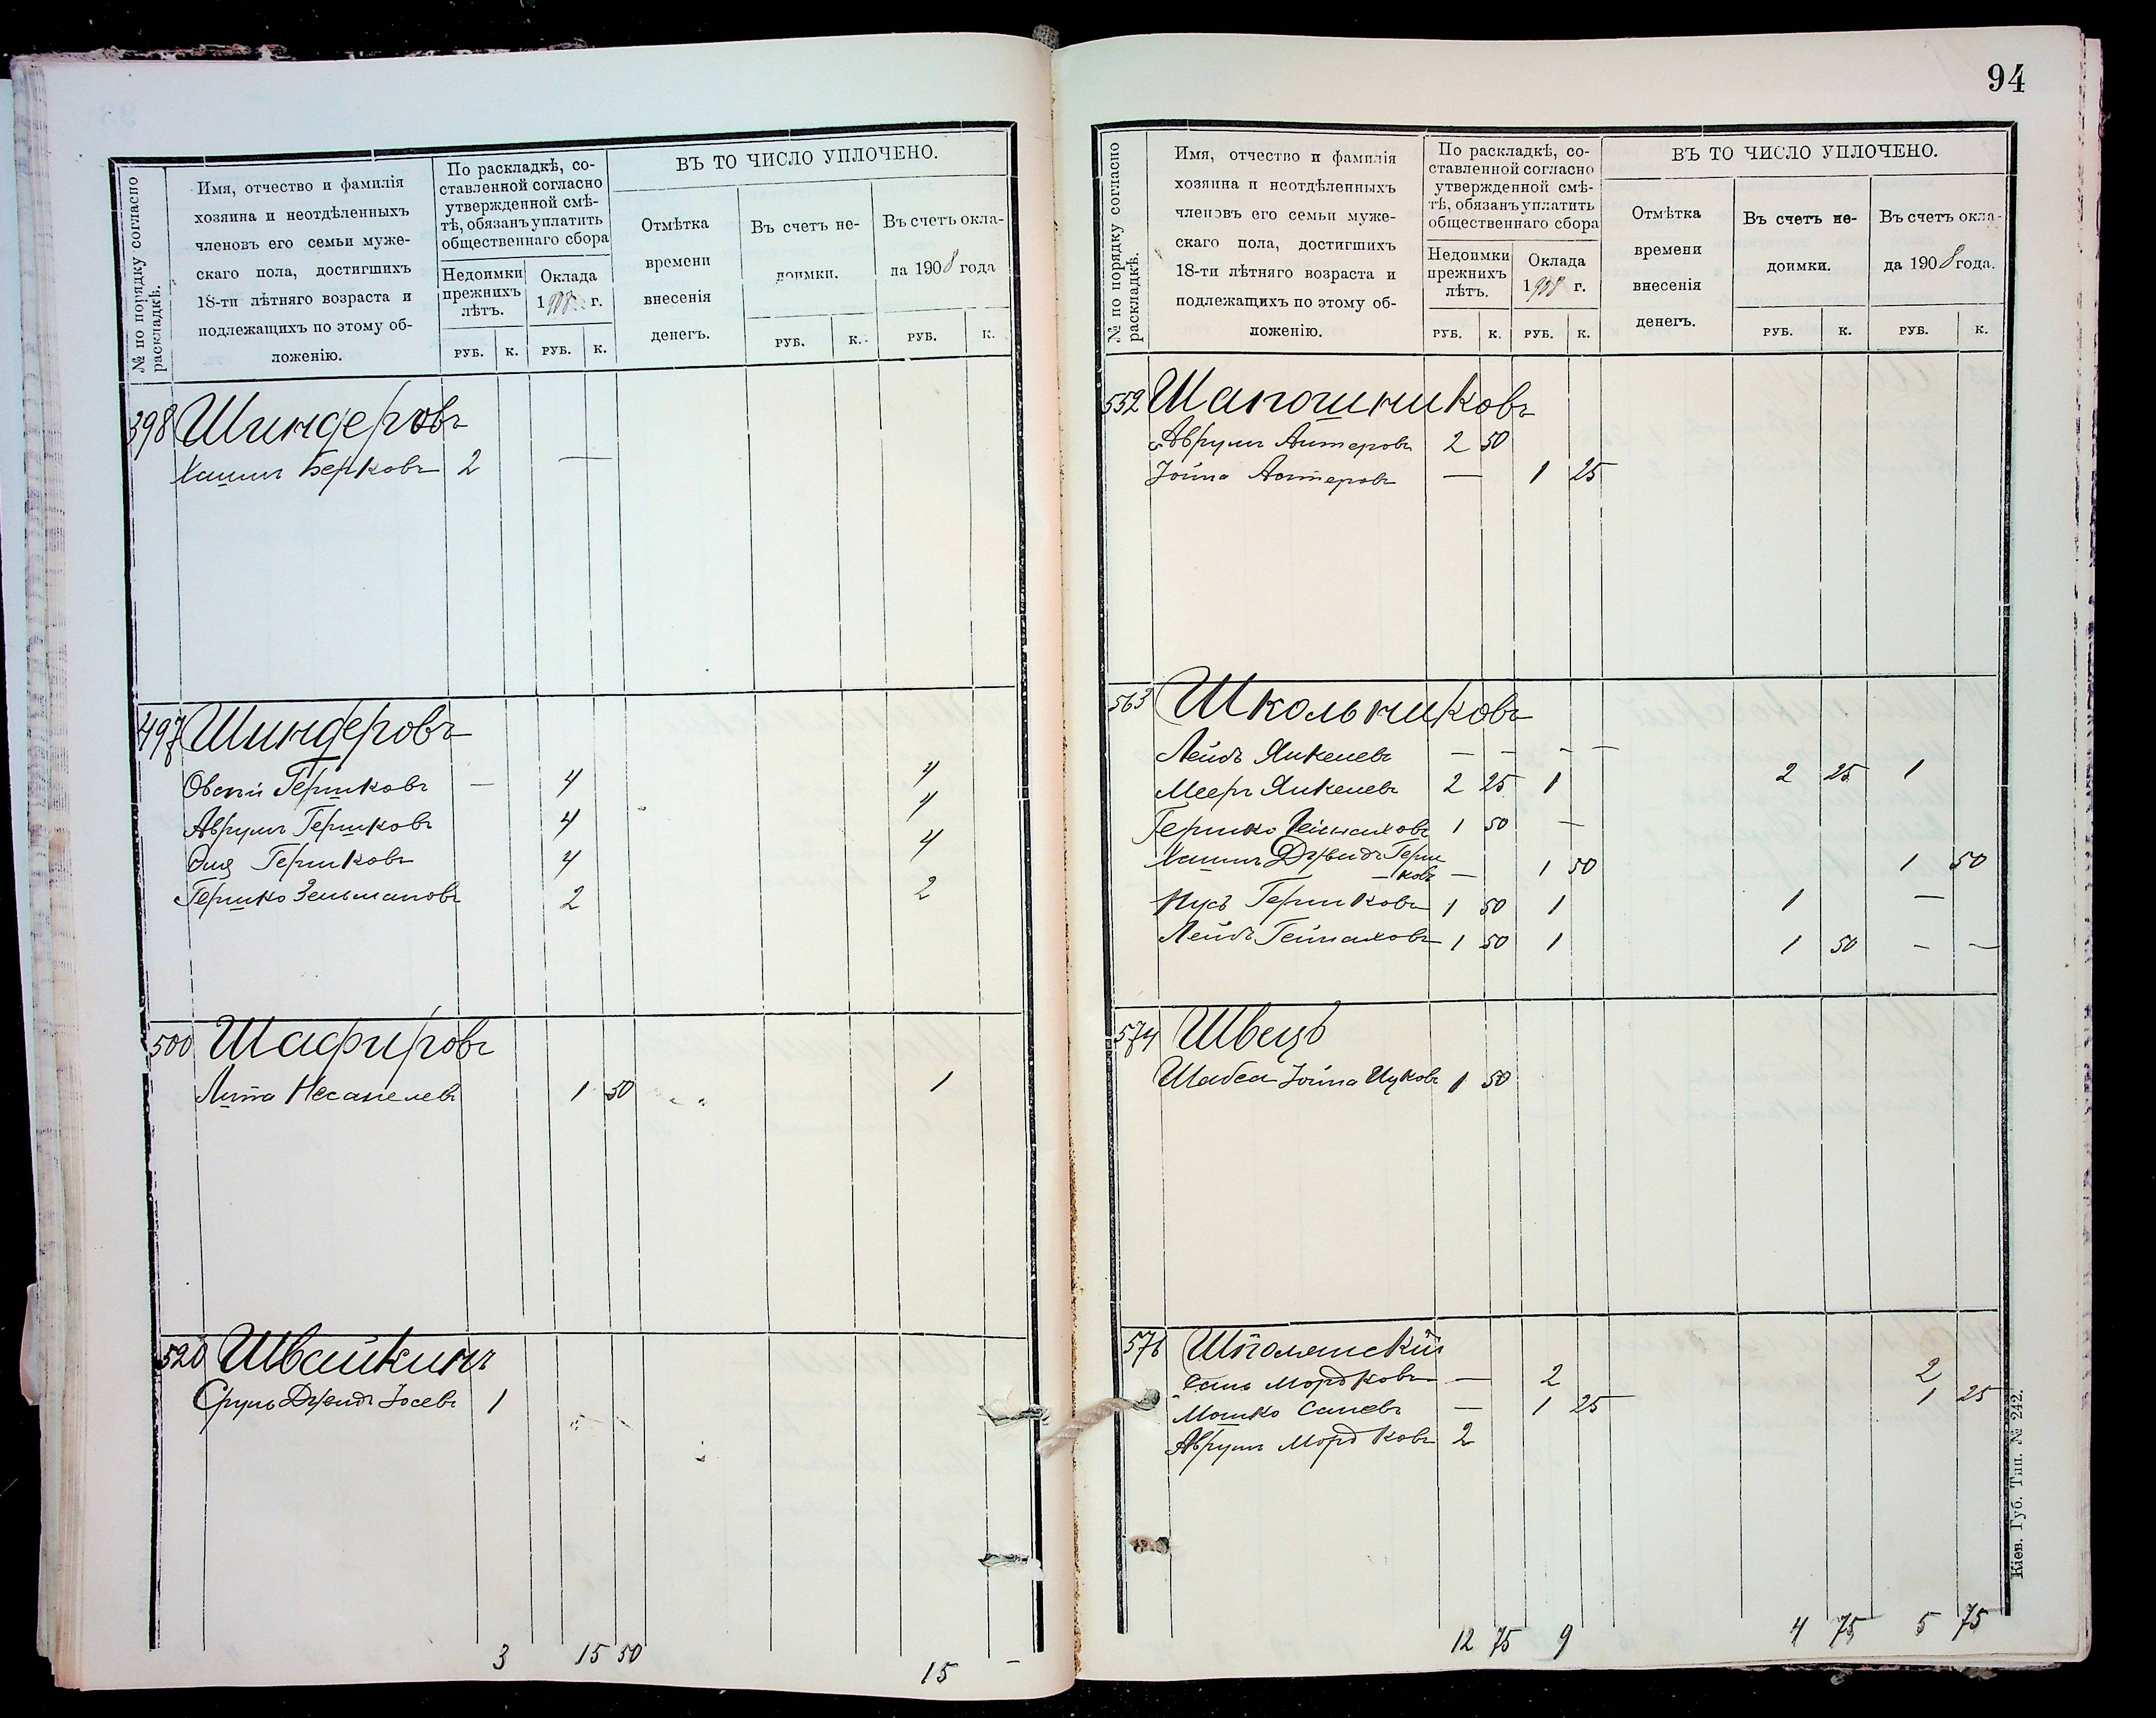 № по порядку согласно раскладкѣ.
Имя, отчество и фамилія
хозяина и неотдѣленныхъ
членовъ его семьи муже-
скаго пола, достигшихъ
18-ти лѣтняго возраста и
подлежащихъ по этому об-
ложенію.
По раскладкѣ, со-
ставленной согласно
утвержденной смѣ-
тѣ, обязанъ уплатить
общественнаго сбора
Недоимки прежнихъ лѣтъ.
Оклада 1908 г.
РУБ. К. РУБ. К.
ВЪ ТО ЧИСЛО УПЛОЧЕНО.
Отмѣтка
времени
внесенія
денегъ.
Въ счетъ не-
доимки.
Въ счетъ окла-
да 1908 года
РУБ. К. РУБ. К.
398 Шиндеровъ
Хаимъ Берковъ 2 —
497 Шиндеровъ
Овсей Гершковъ — 4 4
Аврумъ Гершковъ 4 4
Гершковъ 4 4
Гершко Зельмановъ 2 2
500 Шафировъ
1 50 1
520 Швайкинъ
Сруль Дувидъ Іосевъ 1
3 15 50 15 —
94
№ по порядку согласно раскладкѣ.
Имя, отчество и фамилія
хозяина и неотдѣленныхъ
членовъ его семьи муже-
скаго пола, достигшихъ
18-ти лѣтняго возраста и
подлежащихъ по этому об-
ложенію.
По раскладкѣ, со-
ставленной согласно
утвержденной смѣ-
тѣ, обязанъ уплатить
общественнаго сбора
Недоимки прежнихъ лѣтъ.
Оклада 1908 г.
РУБ. К. РУБ. К.
ВЪ ТО ЧИСЛО УПЛОЧЕНО.
Отмѣтка
времени
внесенія
денегъ.
Въ счетъ не-
доимки.
Въ счетъ окла-
да 1908 года.
РУБ. К. РУБ. К.
552 Шапошниковъ
Аврумъ 2 50
Іойна — 1 25
563 Школьниковъ
Лейбъ Янкелевъ — — — —
Мееръ Янкелевъ 2 25 1 2 25 1
Гершко 1 50 —
Хаимъ Дувидъ Герш
—ковъ — 1 50 1 50
Нусъ Гершковъ 1 50 1 1 —
Лейбъ Гейнаховъ 1 50 1 1 50 — —
574 Швецъ
Шабса Іойна Ицковъ 1 50
576 Шполянскій
Мордковъ — 2 2
Мошко — 1 25 1 25
Аврумъ Мордковъ 2
12 75 9 4 75 5 75
Кіев. Губ. Тип. № 242.